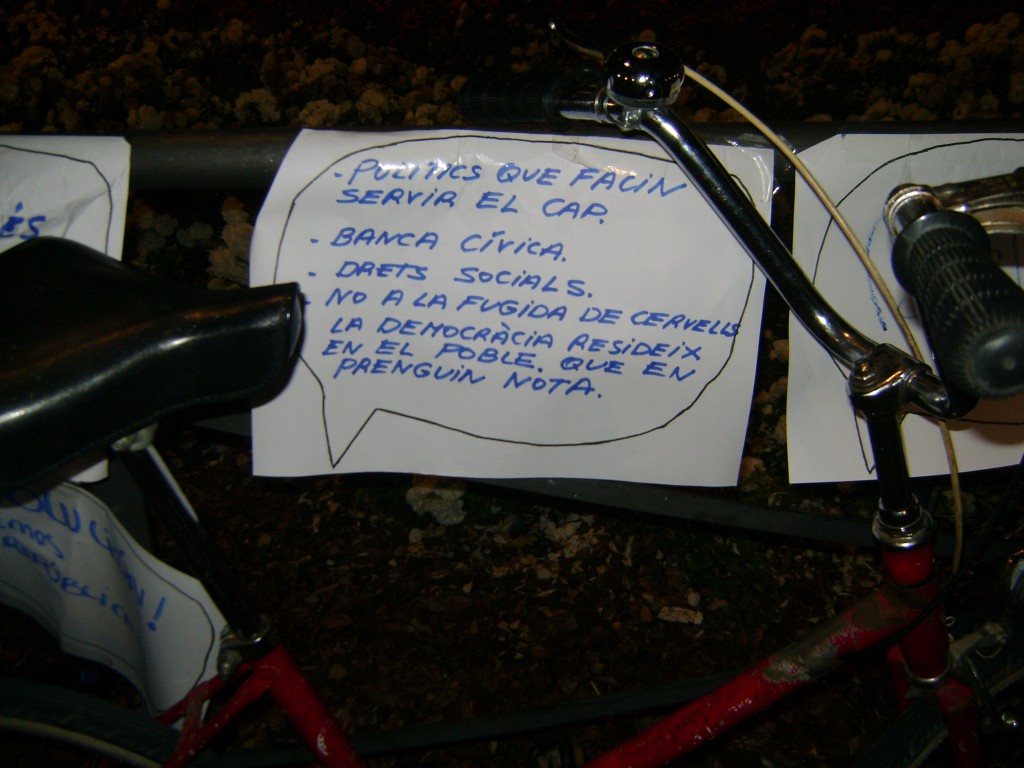 ÉS
- POLÍTICS QUE FACIN
SERVIR EL CAP.
- BANCA CÍVICA.
- DRETS SOCIALS.
- NO A LA FUGIDA DE CERVELLS
LA DEMOCRÀCIA RESIDEIX
EN EL POBLE. QUE EN
PRENGUIN NOTA.